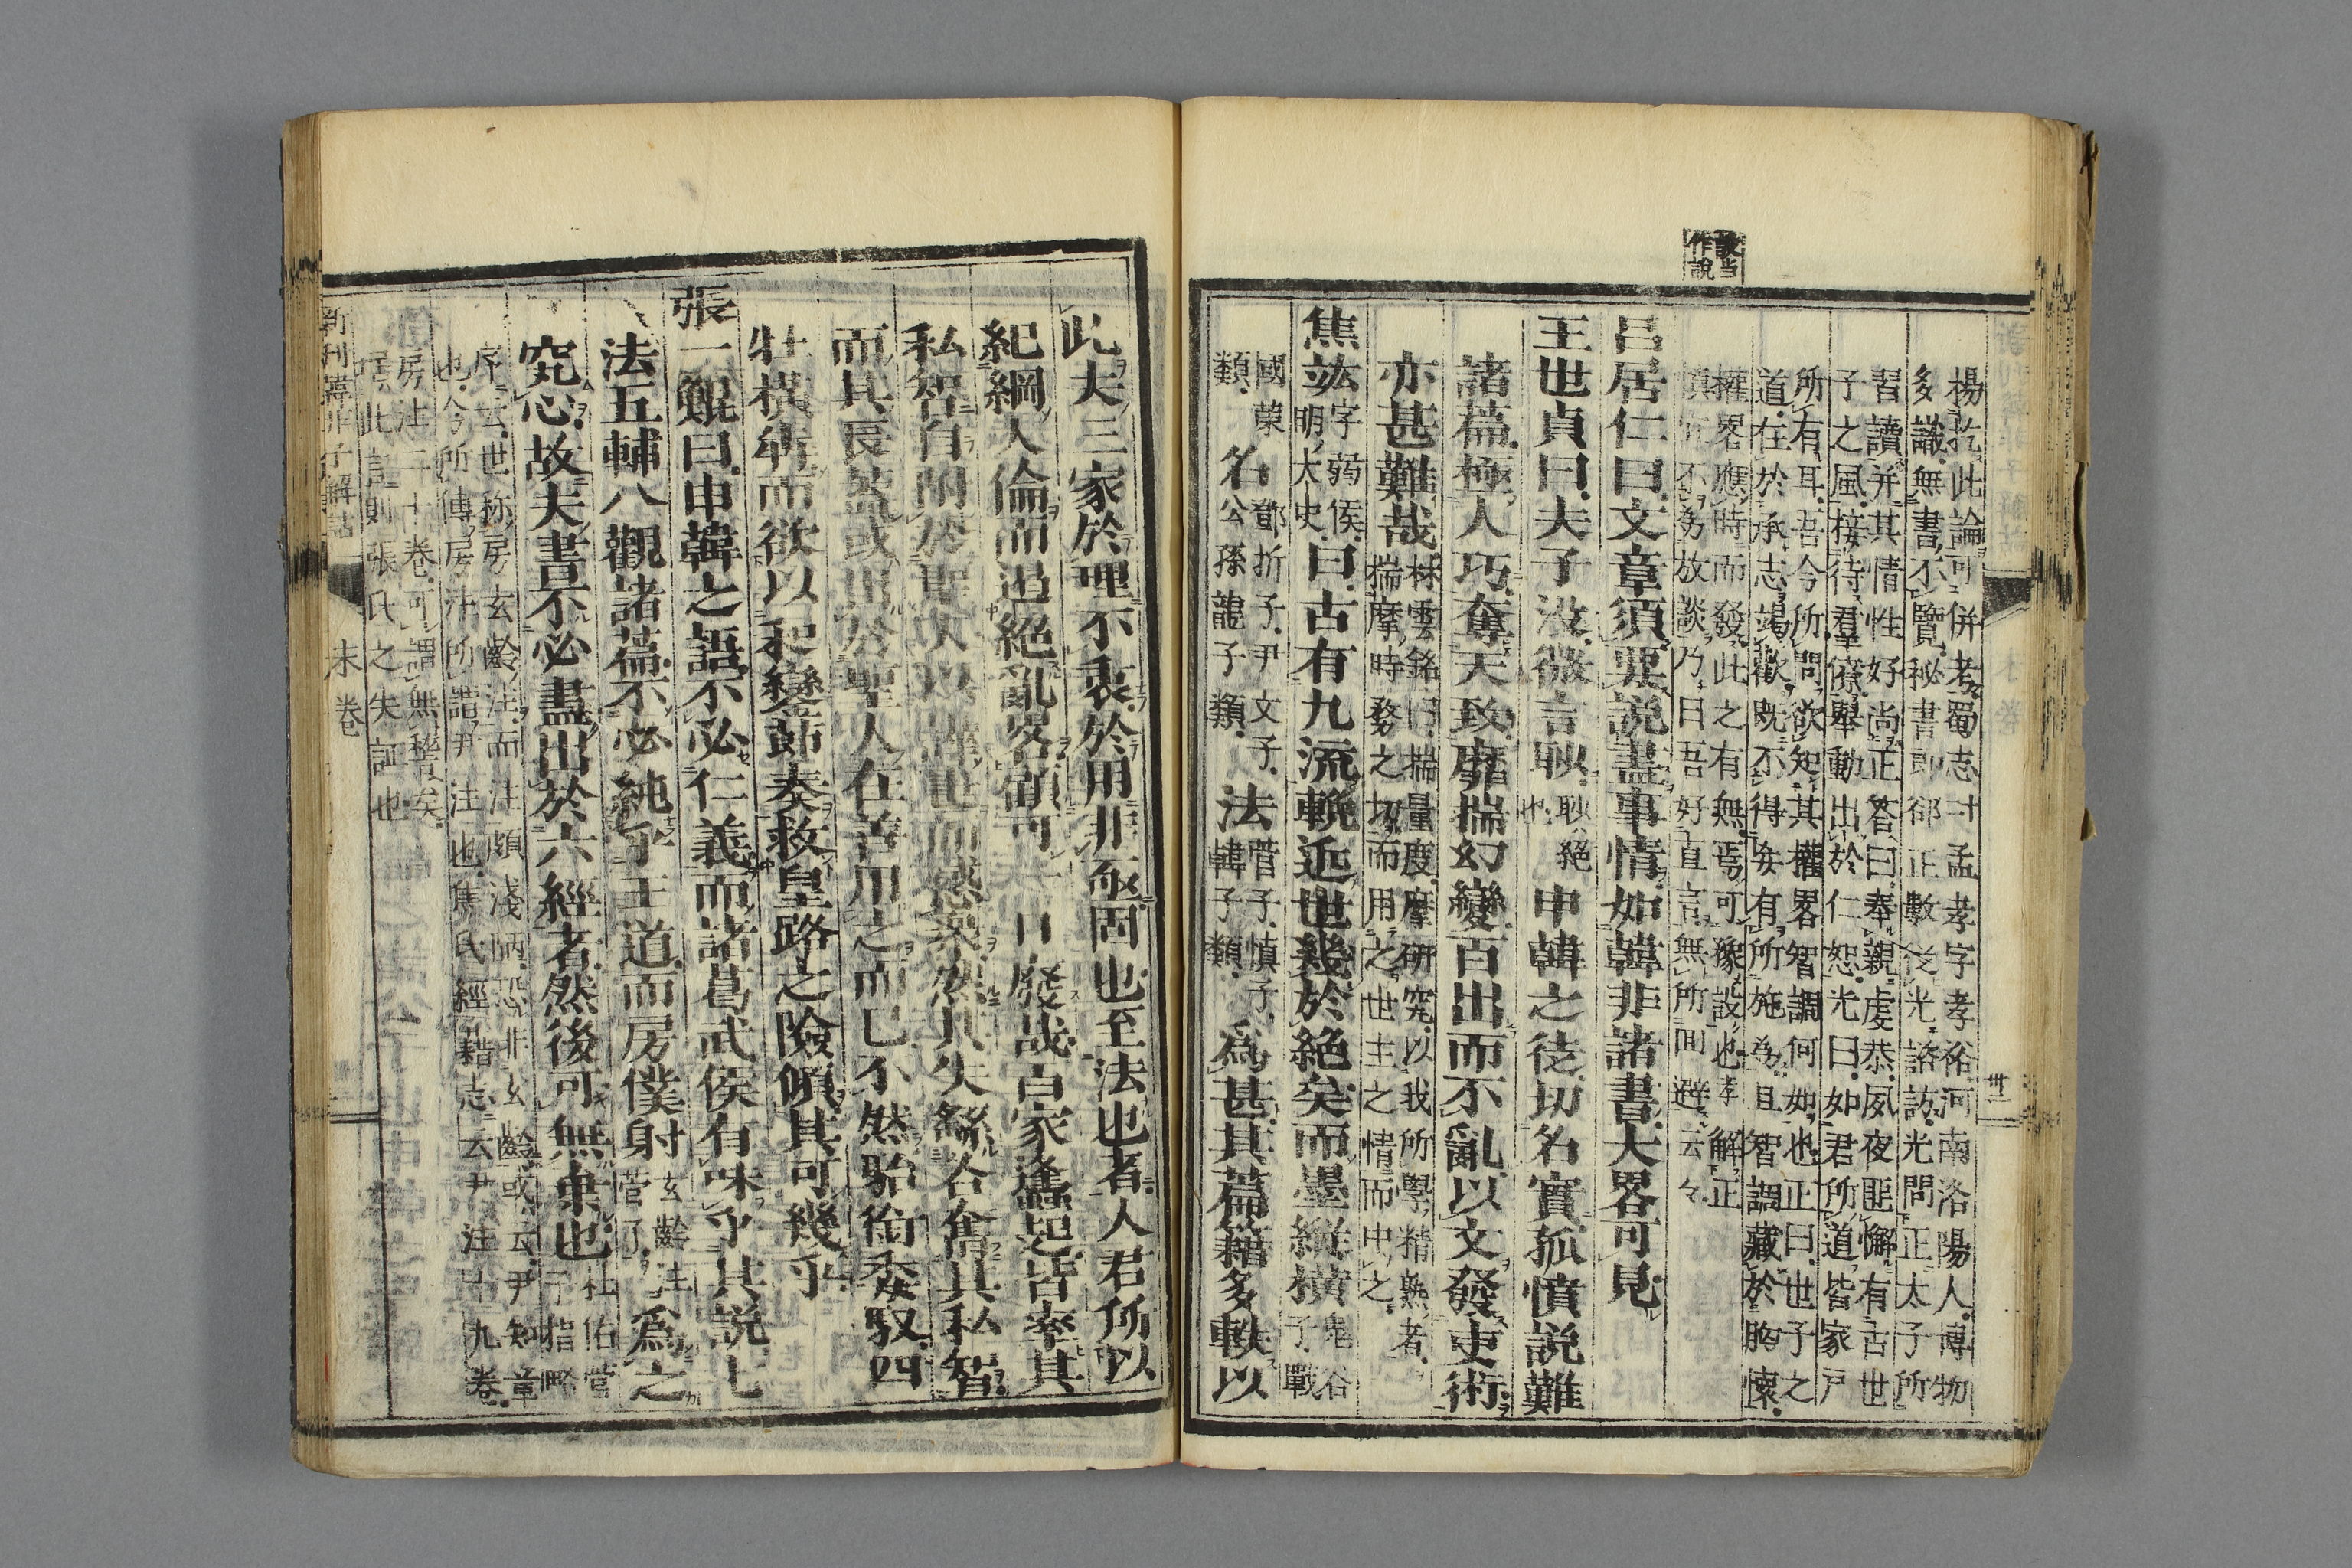 設当
作説
楊子此論可併考蜀志曰孟孝字孝裕河南洛陽人博物
多識無書不覽秘書郎郤正數從光諮訪光問正太子所
習讀并其情性好尚正答曰奉親虔恭夙夜匪懈有古世
子之風接待羣僚舉動出於仁恕光曰如君所道皆家戸
所有耳吾今所問欲知其權畧智調何如也正曰世子之
道在於承志竭歡既不得妄有所施爲且智調藏於胸懷
權畧應時而發此之有無焉可豫設也孝解正
慎宜不爲放談乃曰吾好直言無所囬避云々
呂居仁曰文章須要説盡事情如韓非諸書大畧可見
王世貞曰夫子没微言耾耾絕也申韓之徒切名實孤憤説難
諸篇極人巧奪天致靡揣幻變百出而不亂以文發吏術
亦甚難哉林雲銘曰揣量度摩研究以我所學精熟者揣摩時務之切而用之世主之情而中之
焦竑字弱侯明大史曰古有九流輓近世幾於絕矣而墨縱橫鬼谷子戰
國策類名鄧折子尹文子公孫龍子類法菅子愼子韓子類爲甚其篇籍多軼以
此夫三家於理不衷於用非亟固也至法也者人君所以
紀綱人倫而迅絕亂畧顧可一日廢哉百家蠭起皆率其
私智自附於聖人以譁世而惑衆然其失繇各奮其私智
而其長蓋或出於聖人在善用之而已不然駘銜委馭四
牡橫犇而欲以和鑾節奏救皇路之險傾其可幾乎
張一鯤曰申韓之語不必仁義而諸葛武侯有味乎其説七
法五輔八觀諸篇不必純乎王道而房僕射玄齡注菅子爲之
究心故夫書不必盡出於六經者然後可無棄也杜佑菅子指畧
序云世称房玄齡注而注頗淺陋恐非玄齡或云尹知章
也今所傳房注所謂尹注也焦氏經籍志云尹注廿九卷
房注二十卷可謂無稽矣
據此言則張氏之失証也
新刊韓非子解詁 末卷